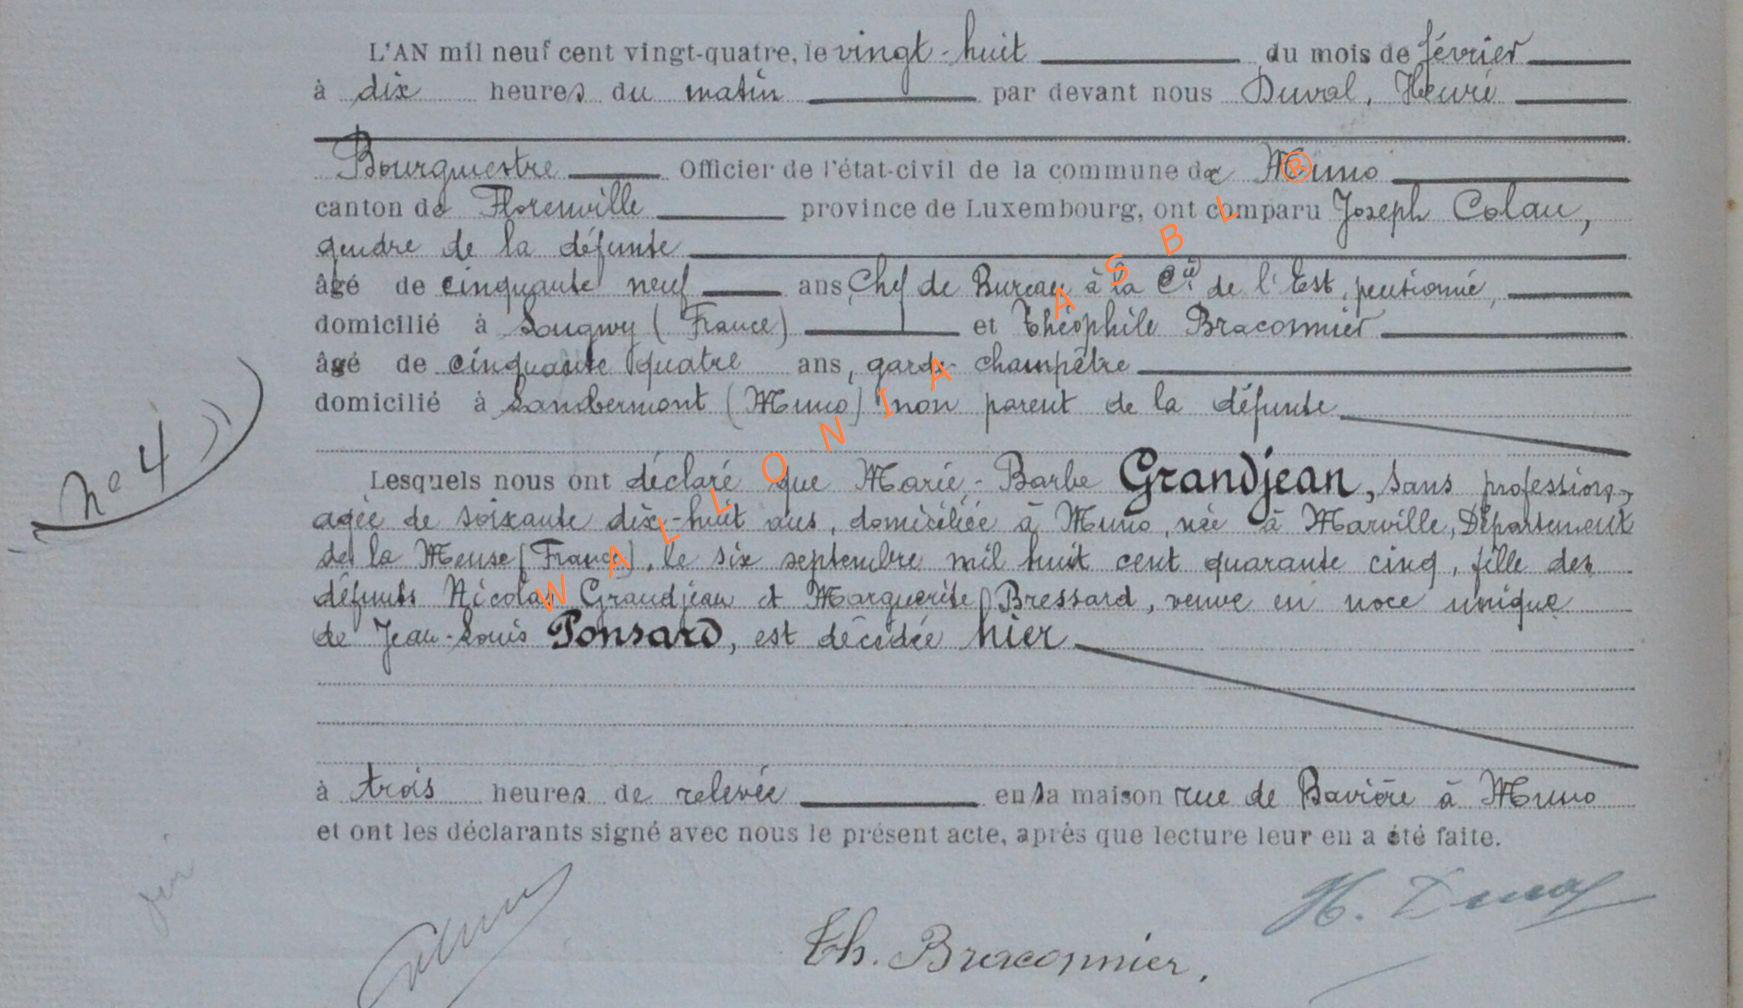 L'AN mil neuf cent vingt-quatre, le vingt-huit du mois de février
à dix heures du matin par devant nous Duval, Henri
Bourgmestre Officier de l'état-civil de la commune de Muno
canton de Florenville province de Luxembourg, ont comparu Joseph Colau,
gendre de la défunte
âgé de cinquante neuf ans, Chef de Bureau à la Cie de l'Est, pensionné,
domicilié à Longwy (France) et Théophile Braconnier
âgé de cinquante quatre ans, garde champêtre
domicilié à Lambermont (Muno) non parent de la défunte
no 4
Lesquels nous ont déclaré que Marie-Barbe Grandjean, sans profession,
agée de soixante dix-huit ans, domiciliée à Muno, née à Marville, Département
de la Meuse (France), le six septembre mil huit cent quarante cinq, fille des
défunts Nicolas Grandjean et Marguerite Bressard, veuve en noce unique
de Jean-Louis Ponsard, est décédée hier
à trois heures de relevée en sa maison rue de Bavière à Muno
et ont les déclarants signé avec nous le présent acte, après que lecture leur en a été faite.
H. Duval
Th. Braconnier.
WALLONIA ASBL ®